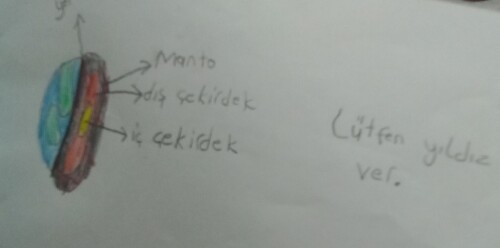 Manto
dış çekirdek
iç çekirdek
Lütfen yıldız
ver.